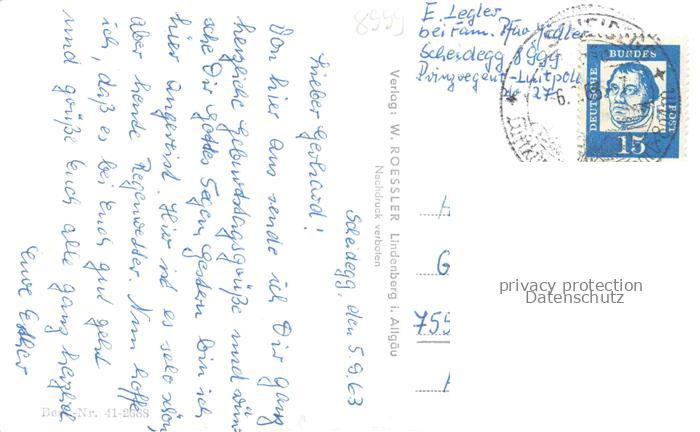 Scheidegg, den 5.9.63
Lieber Gerhard!
Von hier aus sende ich Dir ganz
herzliche Geburtstagsgrüße und wün-
sche Dir Gottes Segen. Gestern bin ich
hier angereist. Hier ist es sehr schön,
aber heute Regenwetter. Nun hoffe
ich, daß es bei Euch gut geht
und grüße Euch alle ganz herzlich
Eure Esther
Best.-Nr. 41-2688
Verlag: W. ROESSLER Lindenberg i. Allgäu
Nachdruck verboten
8999
E. Legler
bei Fam.
Scheidegg 8999
Prinzregent-Luitpold
No 276
DEUTSCHE
BUNDES
POST
15
755
privacy protection
Datenschutz